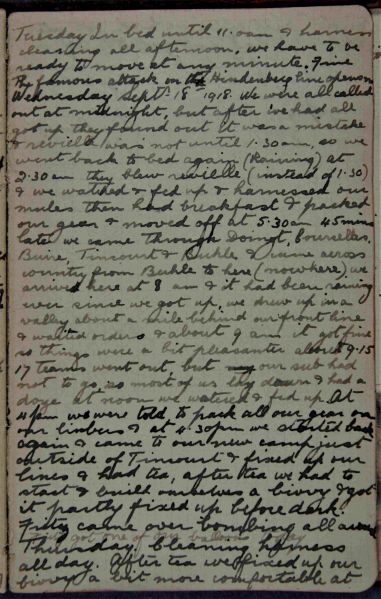 Tuesday In bed until 11.0am & harness
cleaning all afternoon, we have to be
ready to move at any minute. Fine
The famous attack on the Hindenberg line opens on
Wednesday Sept. 18 1918. We were all called
out at midnight, but after we had all
got up they found out it was a mistake
& revielle was not until 1.30am, so we
went back to bed again (Raining) at
2.30am they blew revielle (instead of 1.30)
& we watered & fed up & harnessed our
mules then had breakfast & packed
our gear & moved off at 5.30am 45 mins
late we came through Doingt,
Buire, Tincourt & & came across
country from to here (nowhere), we
arrived here at 8 am & it had been raining
ever since we got up, we drew up in a
valley about a mile behind our front line
& waited orders & about 9 am it got fine
so things were a bit pleasanter about 9.15
17 teams went out, but our sub had
not to go, so most of us lay down & had a
doze at noon we watered & fed up. At
4pm we were told to pack all our gear on
our limbers & at 4.30pm we started back
again & came to our new camp just
outside of Tincourt & fixed up our
lines & had tea, after tea we had to
start & build ourselves a bivvy & got
it partly fixed up before dark.
Fritz came over bombing all around
got one of our balloons today
Thursday, Cleaning harness
all day. After tea we fixed up our
bivvy a bit more comfortable at